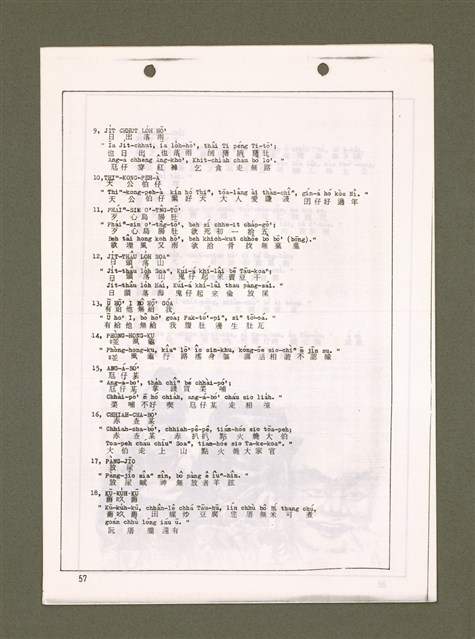 9, JİT CHHUT LÓH HŌ͘
日 出 落 雨
" Iā Ji̍t-chhut, iā lo̍h-hō͘, thâi Ti pėng Ti-tō͘;
也 日 出 也 落 雨 刣 豬
Ang-á chhēng Âng-khò͘, Khit-chiah cháu bô lō͘. "
尪 仔 穿 紅 褲 乞 食 走 無 路
10, THIⁿ-KONG-PEH-Á
天 公 伯 仔
" Thiⁿ-kong-peh-á kín hó Thiⁿ, tōa-lâng ài thàn-chîⁿ, gín-á hó kòe Nî. "
天 公 伯 仔 緊 好 天 大 人 愛 賺 錢 囝 仔 好 過 年
11, PHÁIⁿ-SIM O͘-TN̂G-TŌ͘
歹 心 烏 腸 肚
" Pháiⁿ-sim o͘-tn̂g-tō͘, beh sí chhe-it cháp-gō͘;
歹 心 烏 腸 肚 欲 死 初 一 拾 五
Beh tâi hong koh hō͘, beh khioh-kut chhōe bô bō͘ (bōng). "
欲 埋 風 又 雨 欲 拾 骨 找 無 墓
12, JIT-THÂU LOH SOAⁿ
日 頭 落 山
" Ji̍t-thâu lo̍h Soaⁿ, Kúi-á khí-lâi bē Tāu-koaⁿ;
日 頭 落 山 鬼 仔 起 來 賣 豆 干
Ji̍t-thâu lo̍h Hái, Kúi-á khí-lâi thau pàng-sái. "
日 頭 落 海 鬼 仔 起 來 偷 放 屎
13, Ū HŌ͘ I BÔ HŌ͘ GÓA
有 給 他 無 給 我
" Ū hō͘ I, bô hō͘ góa; Pak-tó͘-piⁿ, siⁿ tó͘-óa. "
有 給 他 無 給 我 腹 肚 邊 生 肚
14, PHÒNG-HONG-KU
風 龜
" Phòng-hong-ku, kiâⁿ lō͘ ê sin-khu,
風 龜 行 路 身 軀 相 不 認
15, ANG-Á-BÓ͘
尪 仔 某
" Ang-á-bó͘, the̍h chîⁿ bé chhài-pó͘;
尪 仔 某 錢 買 菜 脯
Chhài-pó͘ m̄ hó chia̍h, ang-á-bó͘ cháu sio liah. "
菜 脯 不 好 喫 尪 仔 某 走 相
16, CHHIAH-CHA-BÓ͘
赤 查 某
" Chhiah-cha-bó͘, chhiah-pê-pê, tiám-hóe sio tōa-peh;
赤 查 某 赤 扒 扒 點 火 燒 大 伯
Tōa-peh cháu chiūⁿ Soaⁿ, tiám-hóe sio Ta-ke-koaⁿ. "
大 伯 走 上 山 點 火 燒 大 家 官
17, PÀNG-JIŌ
放 尿
" Pàng-jiō siâⁿ sîn, bô pàng ê iûⁿ-hîn. "
放 尿 神 無 放 者 羊
18, KŪ-KÚH-KŪ
" Kū-kúh-kū, chhân-lê chhá Tāu-hū, lín chhù bô bí thang chú,
田 螺 炒 豆 腐 恁 厝 無 米 可 煮
goán chhù lóng iáu ū. "
阮 厝 攏 還 有
57